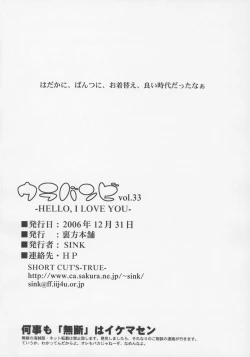 はだかに、ぱんつに、お着替え、良い時代だったなぁ
ウラバンビ vol.33
-HELLO, I LOVE YOU-
■発行日：2006年12月31日
■発行　：裏方本舗
■発行者：SINK
■連絡先・ＨＰ
SHORT CUT'S-TRUE-
http://www.ca.sakura.ne.jp/~sink/
sink@ff.iij4u.or.jp
何事も「無断」はイケマセン